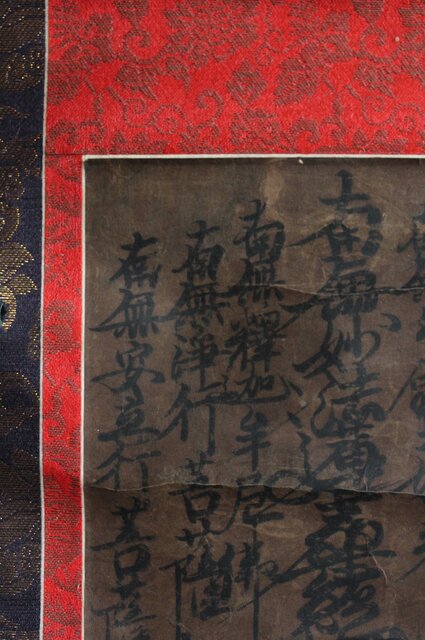 南無妙法蓮華経
南無釋迦牟尼佛
南無淨行菩薩
南無安立行菩薩